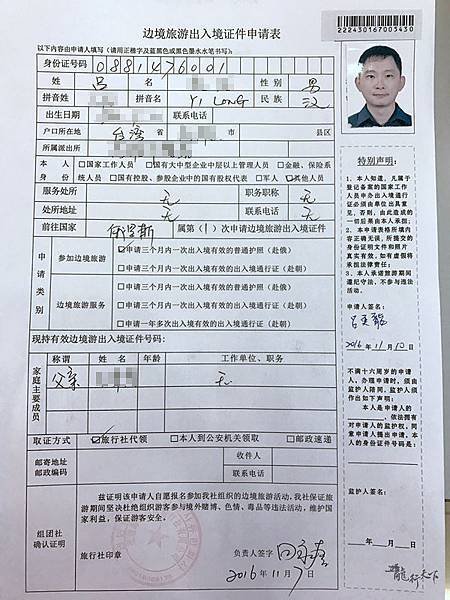 边境旅游出入境证件申请表
222430167005430
以下内容由申请人填写(请用正楷字及蓝黑色或黑色墨水水笔书写):
身份证号码 0881476001
姓 吕 名 性别 男
拼音姓 拼音名 YI LONG 民族 汉
出生日期 联系电话
户口所在地 台湾 省 市 县区
所属派出所
本人身份 □国家工作人员 □国有大中型企业中层以上管理人员 □金融、保险系
统人员 □国有控股、参股企业中的国有股权代表 □军人 ☑其他人员
服务处所 无 职务职称 无
处所地址 无 联系电话 无
前往国家 俄罗斯 属第(1)次申请边境旅游出入境证件
申请类别
参加边境旅游
☑申请三个月内一次出入境有效的普通护照(赴俄)
□申请三个月内一次出入境有效的出入境通行证(赴朝)
边境旅游服务
□申请三个月内一次出入境有效的普通护照(赴俄)
□申请三个月内一次出入境有效的出入境通行证(赴朝)
□申请一年多次出入境有效的出入境通行证(赴朝)
现持有效边境游出入境证件号码:
家庭主要成员
称谓 姓名 年龄 工作单位、职务
父亲 无
取证方式 ☑旅行社代领 □本人到公安机关领取 □邮政速递
邮寄地址 收件人
邮政编码 联系电话
组团社确认证明
兹证明该申请人自愿报名参加我社组织的边境旅游活动,我社保证旅
游期间坚决杜绝组织游客参与境外赌博、色情、毒品等违法活动,维护国
家利益,保证游客安全。
旅行社印章 负责人签字
2016年11月7日
特别声明:
1、本人知道,凡属于
登记备案的国家工作人
员申办出入境通行
证必须由单位出具意
见,否则,由此造成的
一切后果由本人承担;
2、本申请表格所填内
容正确无误,所提交的
身份证明文件和照片
真实有效,如有虚假将
承担法律责任;
3、本人承诺旅游期间
遵纪守法,不参与违法
活动。
申请人签名:
2016年11月10日
不满十六周岁的申请
人,办理申请时,须由
监护人陪同,监护人须
作出如下声明:
本人是申请人的
,依法拥有
对申请人的监护权,同
意申请人提出申请。本
人的身份证件号是:
监护人签名:
年 月 日
龍行天下